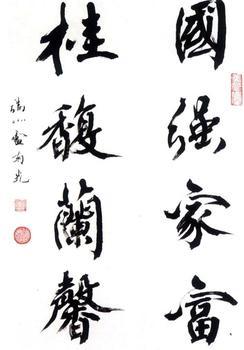 國強家富
桂馥蘭馨